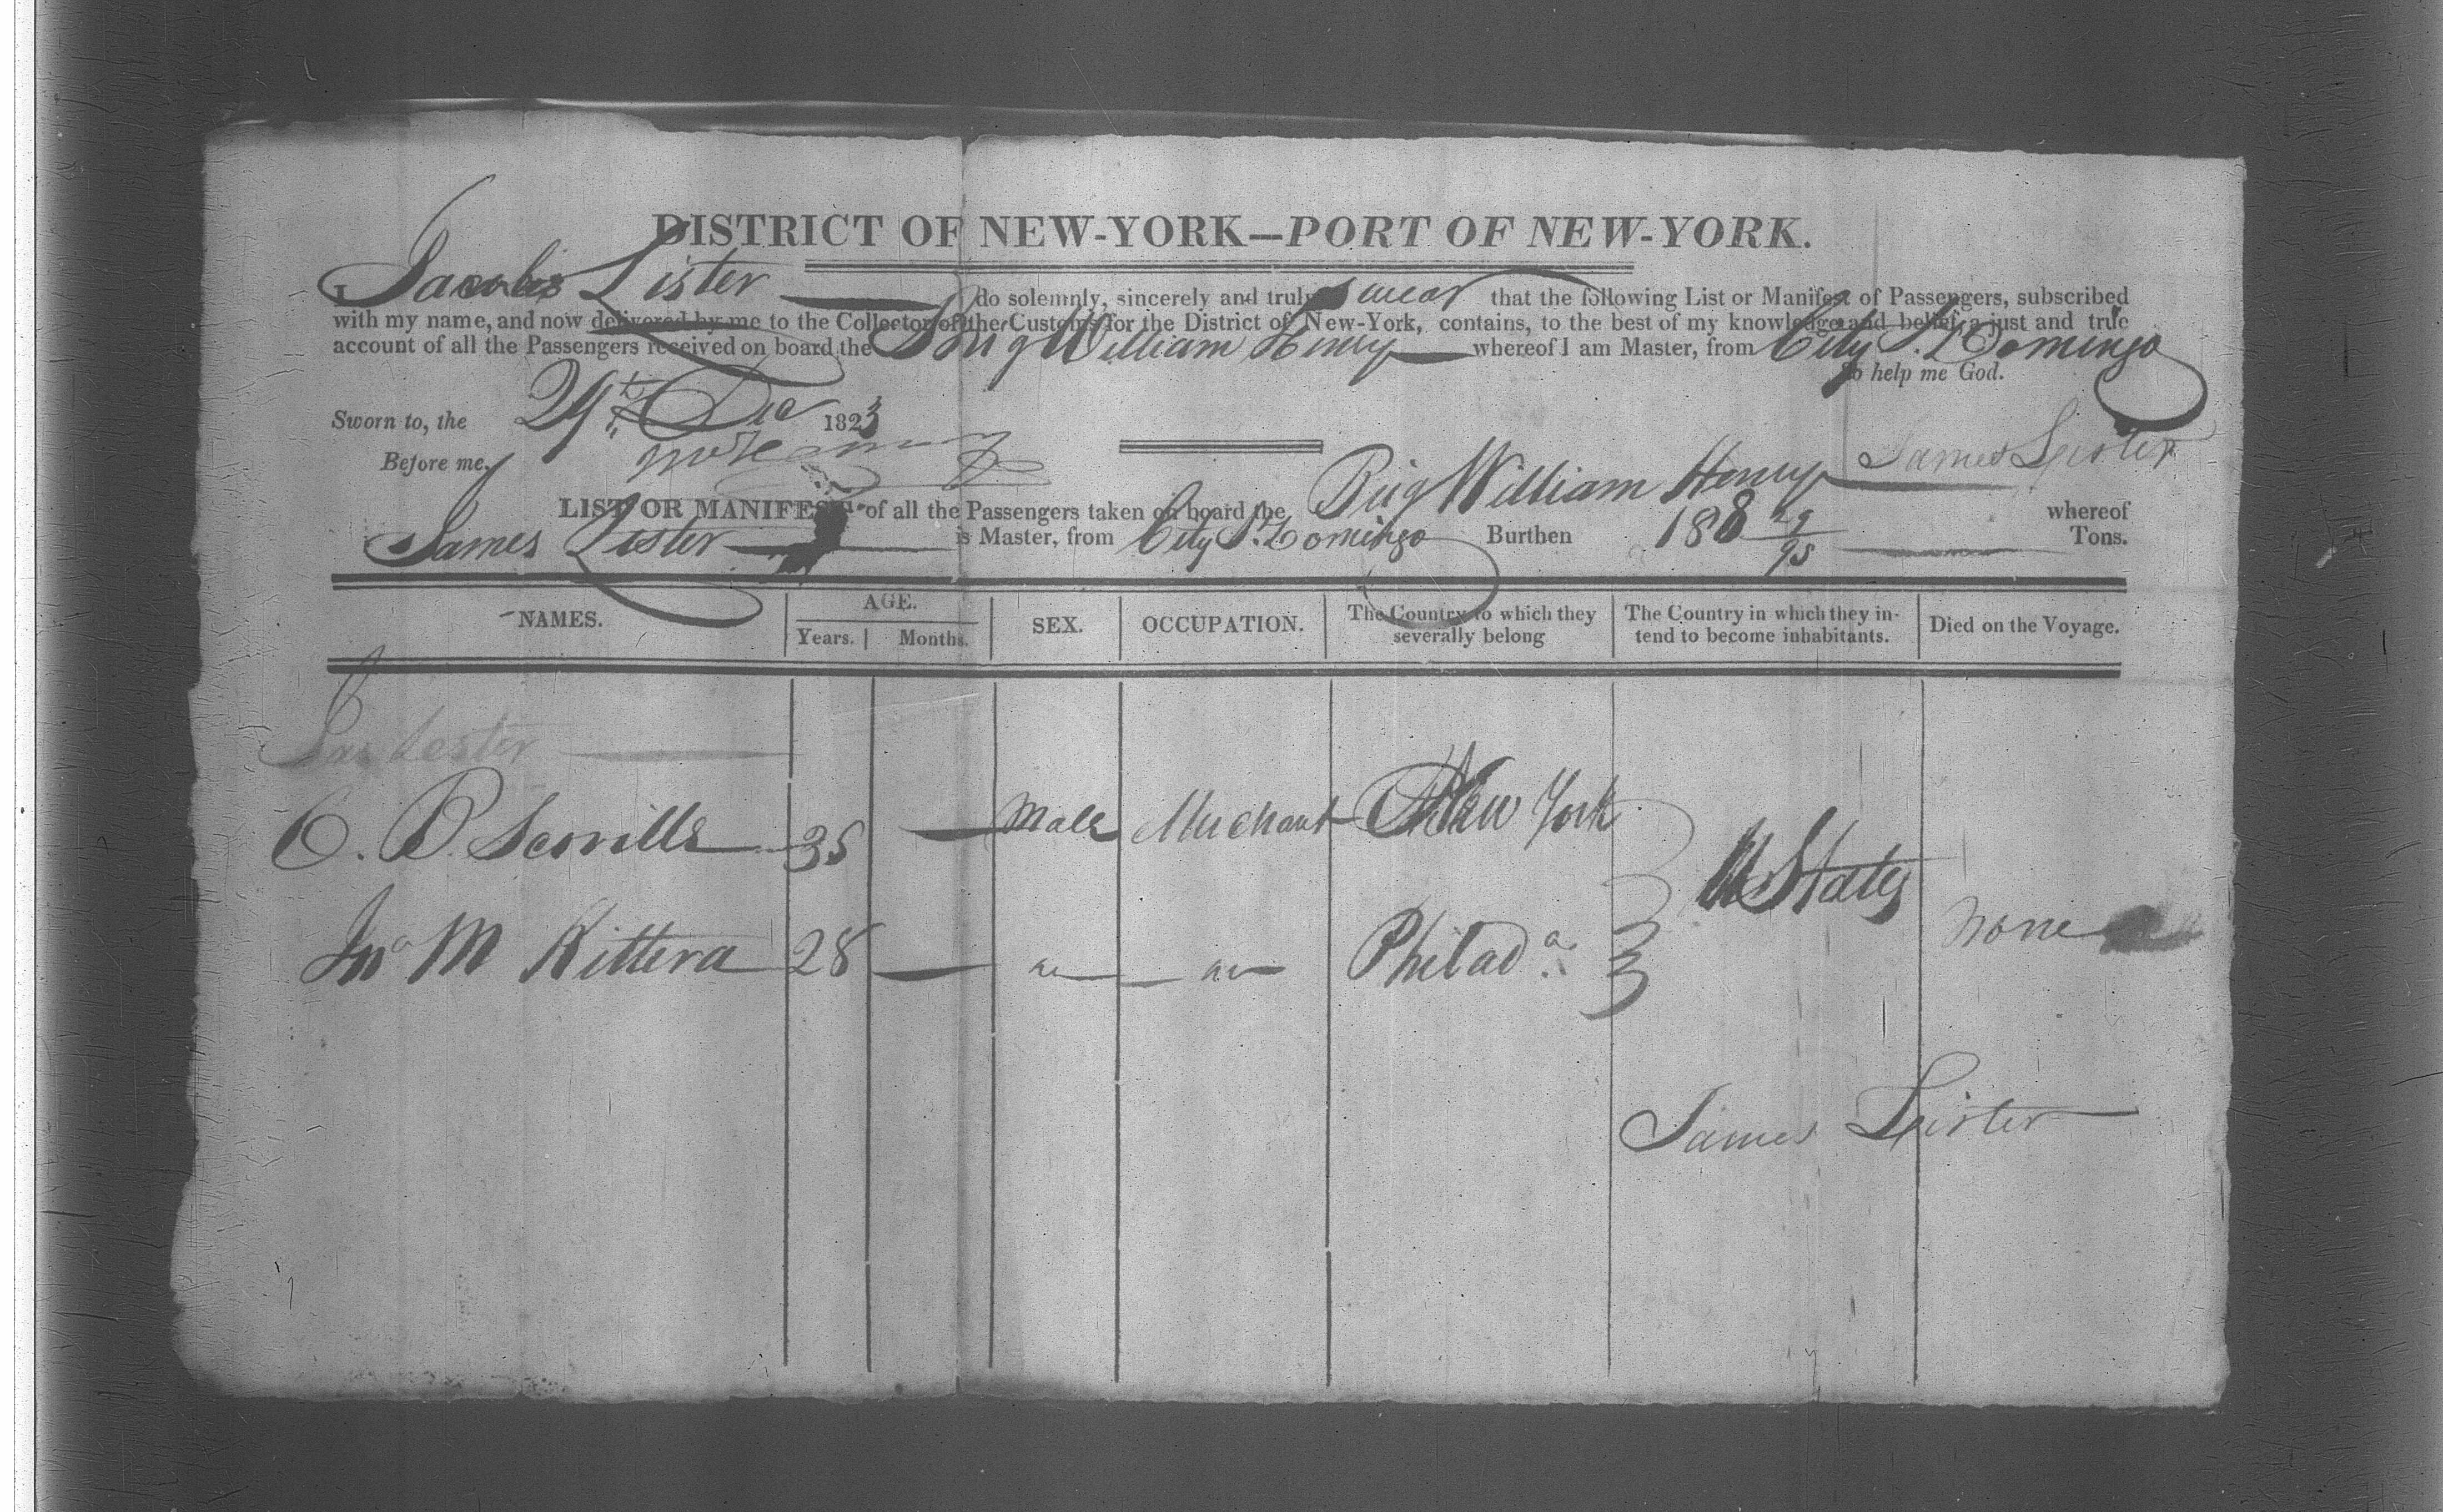 DISTRICT OF NEW-YORK—PORT OF NEW-YORK.
I Lister do solemnly, sincerely and truly swear that the following List or Manifest of Passengers, subscribed
with my name, and now delivered by me to the Collector of the Customs for the District of New-York, contains, to the best of my knowledge and belief, a just and true
account of all the Passengers received on board the Brig William Henry whereof I am Master, from City St. Domingo
So help me God.
Sworn to, the 29th Dec 1823
Before me,
James Leister
LIST OR MANIFEST of all the Passengers taken on board the Brig William Henry whereof
James Lister is Master, from City St. Domingo Burthen 188 29/95 Tons.
NAMES. AGE. Years. Months. SEX. OCCUPATION. The Country to which they severally belong The Country in which they intend to become inhabitants. Died on the Voyage.
Lester
C. P. Scoville 35 — Male Merchant New York
U States
None
Jno M Kittera 28 — " " Philada.
James Leister